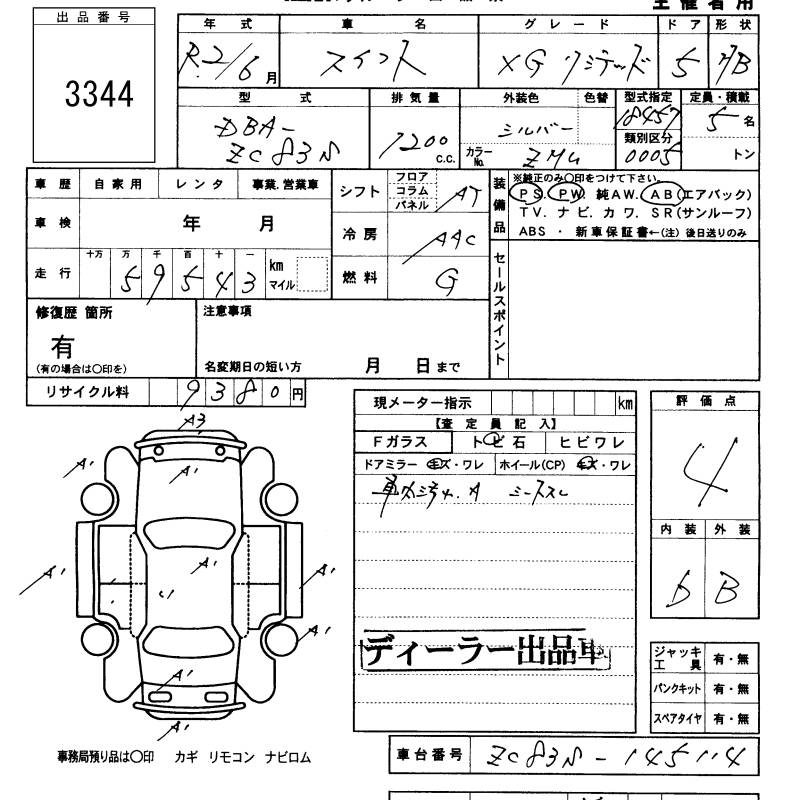 主催者用
出品番号
3344
年式 車名 グレード ドア 形状
R.2/6月 スイフト XG リミテッド 5 HB
型式 排気量 外装色 色替 型式指定 定員・積載
DBA- シルバー 18457 5名
ZC83S 1200 c.c. カラーNo. 類別区分 0005 トン
車歴 自家用 レンタ 事業.営業車
シフト フロア コラム パネル AT
装備品
※純正のみ〇印をつけて下さい。
PS. PW. 純AW. AB(エアバック)
TV. ナビ. カワ. SR(サンルーフ)
ABS ・ 新車保証書←(注)後日送りのみ
車検 年 月
冷房 AAC
走行 十万 万 千 百 十 一
59543 km マイル
燃料 G
セールスポイント
修復歴 箇所
有
(有の場合は〇印を)
注意事項
名変期日の短い方 月 日まで
リサイクル料 9380円
現メーター指示 km
【査定員記入】
Fガラス トビ石 ヒビワレ
ドアミラー キズ・ワレ ホイール(CP) キズ・ワレ
評価点
4
内装 外装
B
A3
A1
A1
A1
A1
A1
A1
A1
A1
A1
ディーラー出品車
ジャッキ工具 有・無
パンクキット 有・無
スペアタイヤ 有・無
事務局預り品は〇印 カギ リモコン ナビロム
車台番号 ZC83S-145114